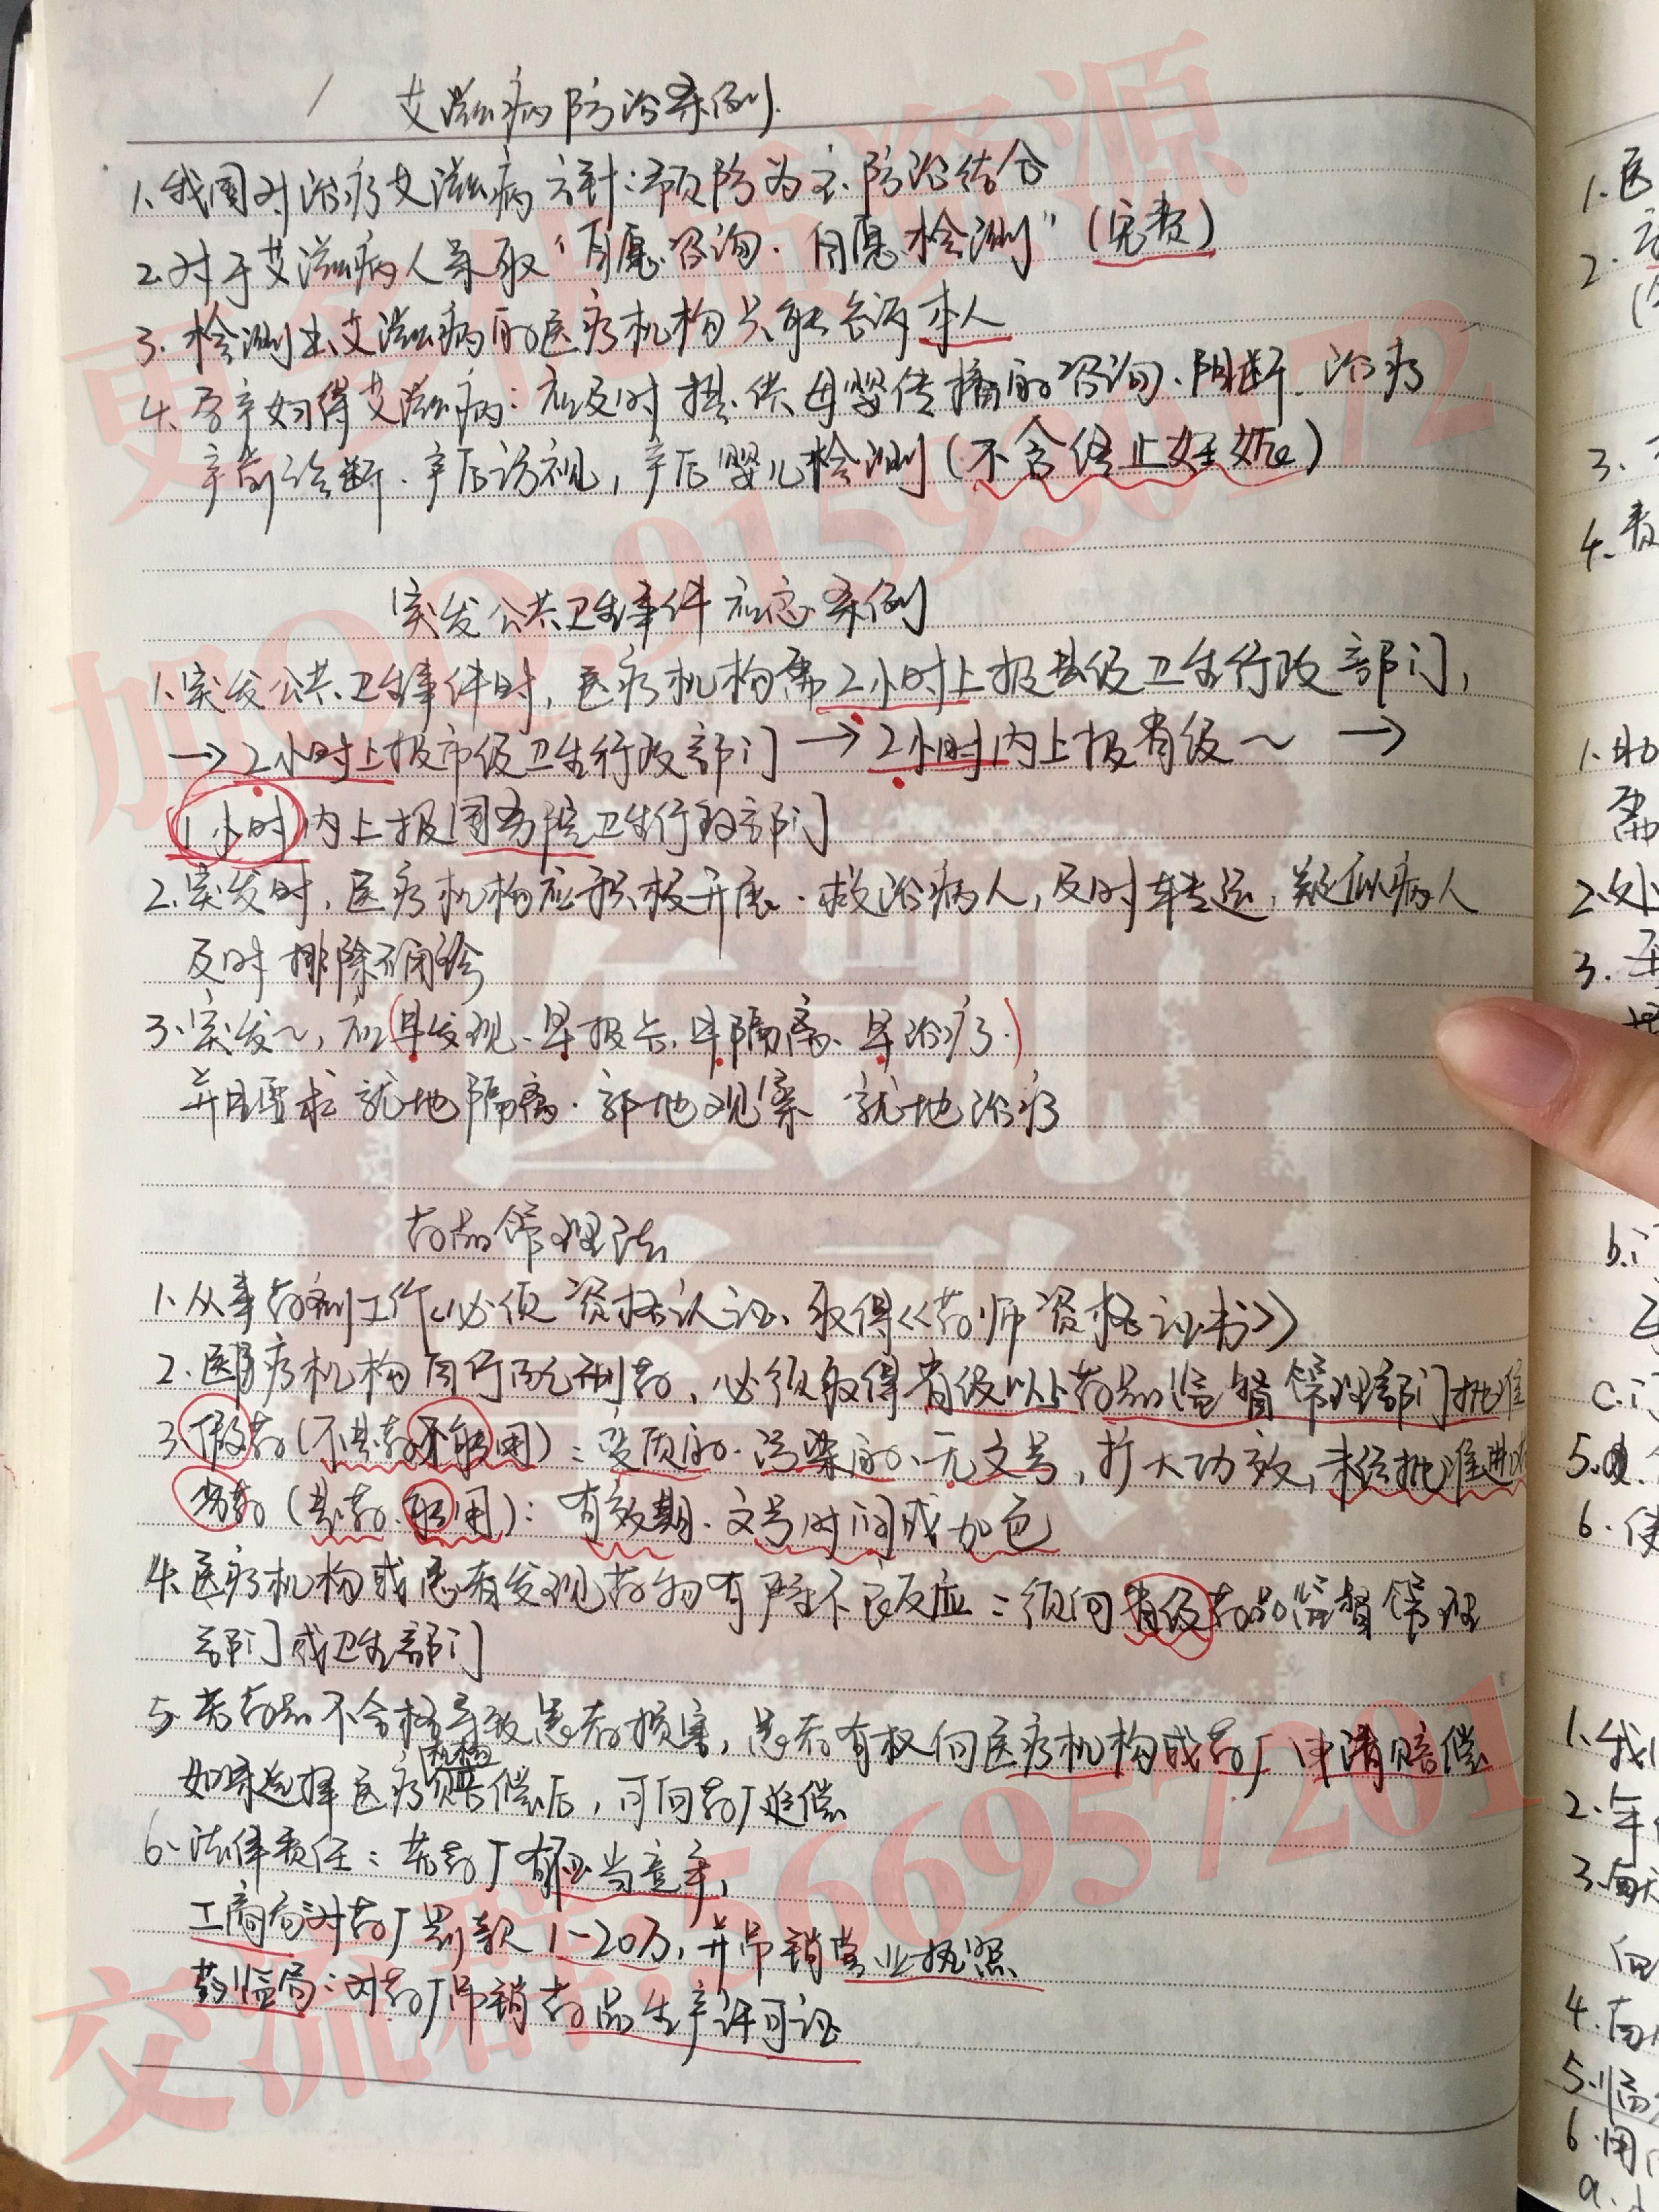 艾滋病防治条例
1.我国对治疗艾滋病方针:预防为主.防治结合
2.对于艾滋病人采取“自愿咨询.自愿检测”(免费)
3.检测出艾滋病的医疗机构只能告诉本人
4.孕产妇得艾滋病:应及时提供母婴传播的咨询、阻断.治疗
产前诊断.产后访视,产后婴儿检测(不含终止妊娠)
突发公共卫生事件应急条例
1.突发公共卫生事件时,医疗机构需2小时上报县级卫生行政部门,
→2小时上报市级卫生行政部门→2小时内上报省级~→
1小时内上报国务院卫生行政部门
2.突发时,医疗机构应积极开展.救治病人,及时转运,疑似病人
及时排除或确诊
3.突发~,应(早发现、早报告、早隔离、早治疗.)
并且要求就地隔离.就地观察 就地治疗
药品管理法
1.从事药剂工作必须资格认证、取得《药师资格证书》
2.医疗机构自行配制药,必须取得省级以上药品监督管理部门批准
3.假药(不是药.不能用):变质的.污染的、无文号,扩大功效,未经批准进口
劣药(是药.能用):有效期.文号时间或加色
4.医疗机构或患者发现药物有严重不良反应:须向省级药品监督管理
部门或卫生部门
5.若药品不合格导致患者损害,患者有权向医疗机构或药厂申请赔偿
如果选择医疗机构赔偿后,可向药厂追偿
6.法律责任:若药厂有不正当竞争,
工商局:对药厂罚款1-20万,并吊销营业执照
药监局:对药厂吊销药品生产许可证
更多优质资源
加QQ:915930172
医凯
交流群:566957201
1.医
2.
3.
4.
1.
2.处
3.
b.
c.
5.
6.使
1.我
2.年
3.
向
4.
5.临
6.用
a.